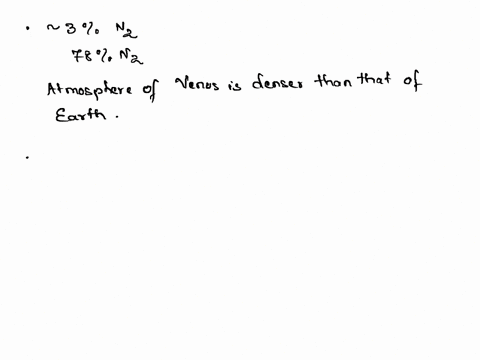 . ~ 3 % N2
78 % N2
Atmosphere of Venus is denser than that of
Earth .
.